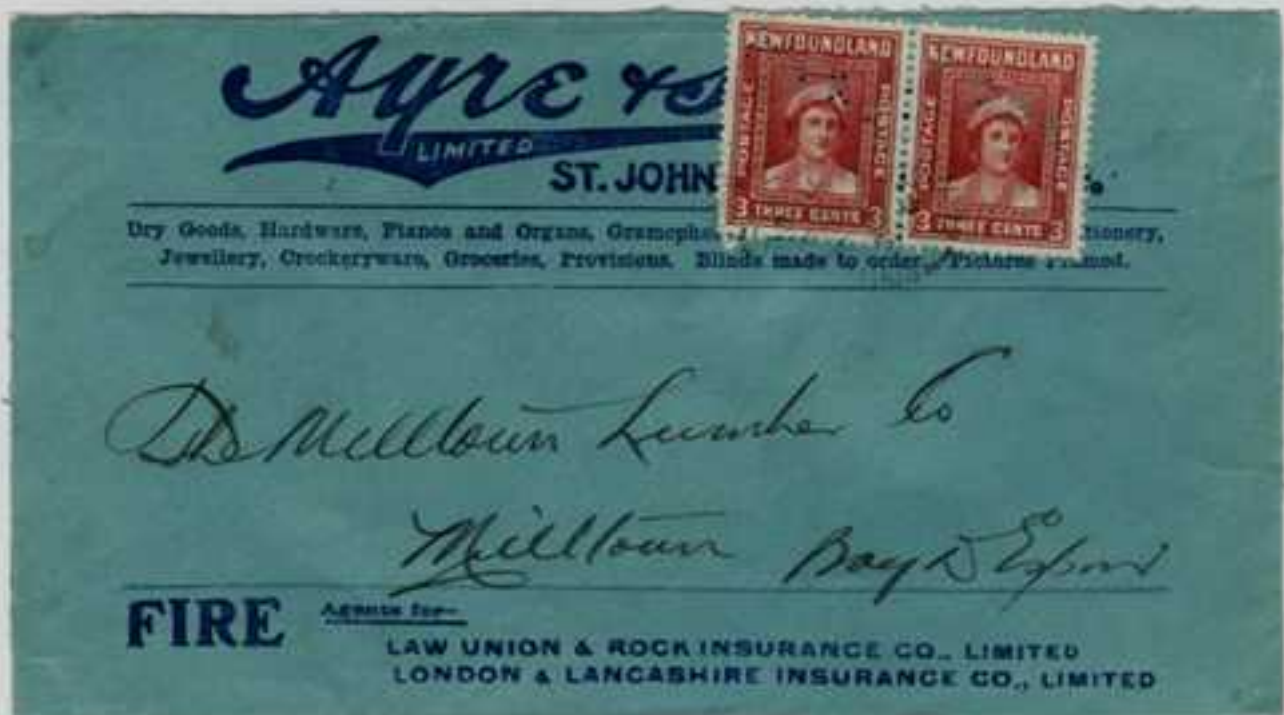 Ayre & S
LIMITED
ST. JOHN
NEWFOUNDLAND
POSTAGE POSTAGE
3 THREE CENTS 3
NEWFOUNDLAND
POSTAGE POSTAGE
3 THREE CENTS 3
Dry Goods, Hardware, Pianos and Organs, Gramopho tionery,
Jewellery, Crockeryware, Groceries, Provisions. Blinds made to order. Pictures Framed.
The Milltown Lumber Co
Milltown Bay D'Espoir
FIRE Agents for—
LAW UNION & ROCK INSURANCE CO., LIMITED
LONDON & LANCASHIRE INSURANCE CO., LIMITED